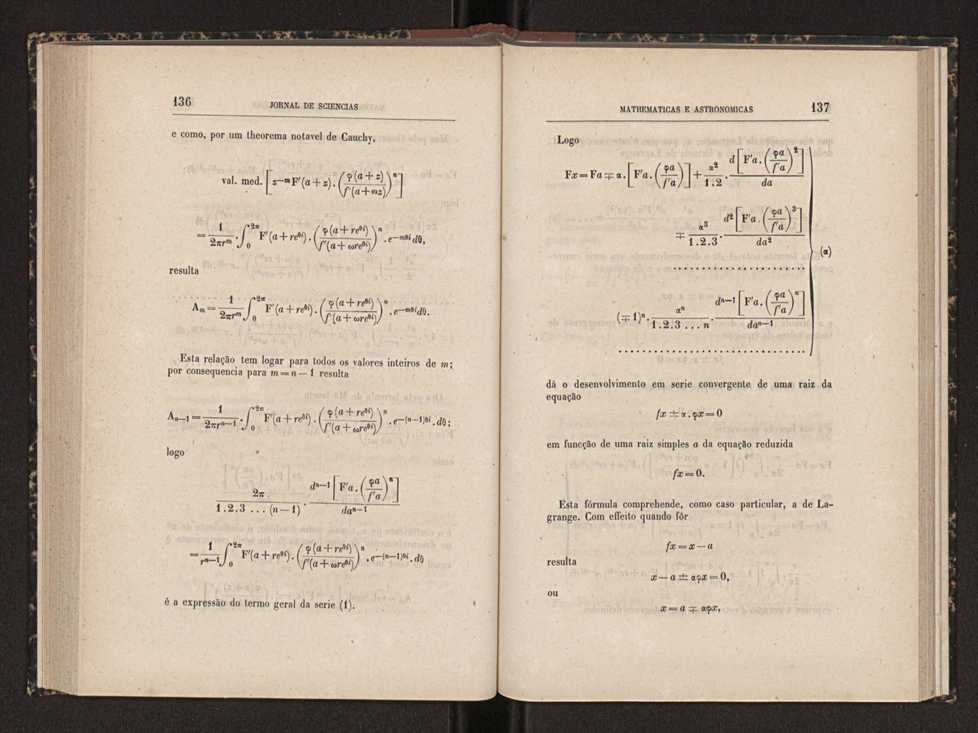 136 JORNAL DE SCIENCIAS
e como, por um theorema notavel de Cauchy,
val. med. [z^{-m} F'(a+z).(φ(a+z)/f'(a+ωz))^n]
= 1/(2πr^m).∫_0^{2π} F'(a+re^{θi}).(φ(a+re^{θi})/f'(a+ωre^{θi}))^n.e^{-mθi}dθ,
resulta
A_m = 1/(2πr^m).∫_0^{2π} F'(a+re^{θi}).(φ(a+re^{θi})/f'(a+ωre^{θi}))^n.e^{-mθi}dθ.
Esta relação tem logar para todos os valores inteiros de m;
por consequencia para m=n-1 resulta
A_{n-1} = 1/(2πr^{n-1}).∫_0^{2π} F'(a+re^{θi}).(φ(a+re^{θi})/f'(a+ωre^{θi}))^n.e^{-(n-1)θi}.dθ;
logo
2π/(1.2.3...(n-1)).d^{n-1}[F'a.(φa/f'a)^n]/da^{n-1}
= 1/r^{n-1}∫_0^{2π} F'(a+re^{θi}).(φ(a+re^{θi})/f'(a+ωre^{θi}))^n.e^{-(n-1)θi}.dθ
é a expressão do termo geral da serie (1).
MATHEMATICAS E ASTRONOMICAS 137
Logo
Fx=Fa∓α.[F'a.(φa/f'a)]+α^2/(1.2).d[F'a.(φa/f'a)^2]/da
∓α^3/(1.2.3).d^2[F'a.(φa/f'a)^3]/da^2 (α)
. . . . . . . . . . . . . . . . . . . . . . .
(∓1)^n.α^n/(1.2.3...n).d^{n-1}[F'a.(φa/f'a)^n]/da^{n-1}
. . . . . . . . . . . . . . . . . . . . . . . . . . . . .
dá o desenvolvimento em serie convergente de uma raiz da
equação
fx ± α.φx=0
em funcção de uma raiz simples a da equação reduzida
fx=0.
Esta fórmula comprehende, como caso particular, a de La-
grange. Com effeito quando fôr
fx=x-a
resulta
x-a ± αφx=0,
ou
x=a ∓ αφx,